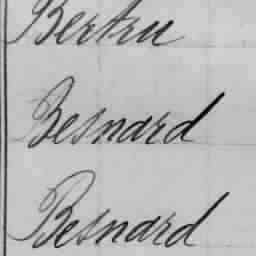 Bertru
Besnard
Besnard